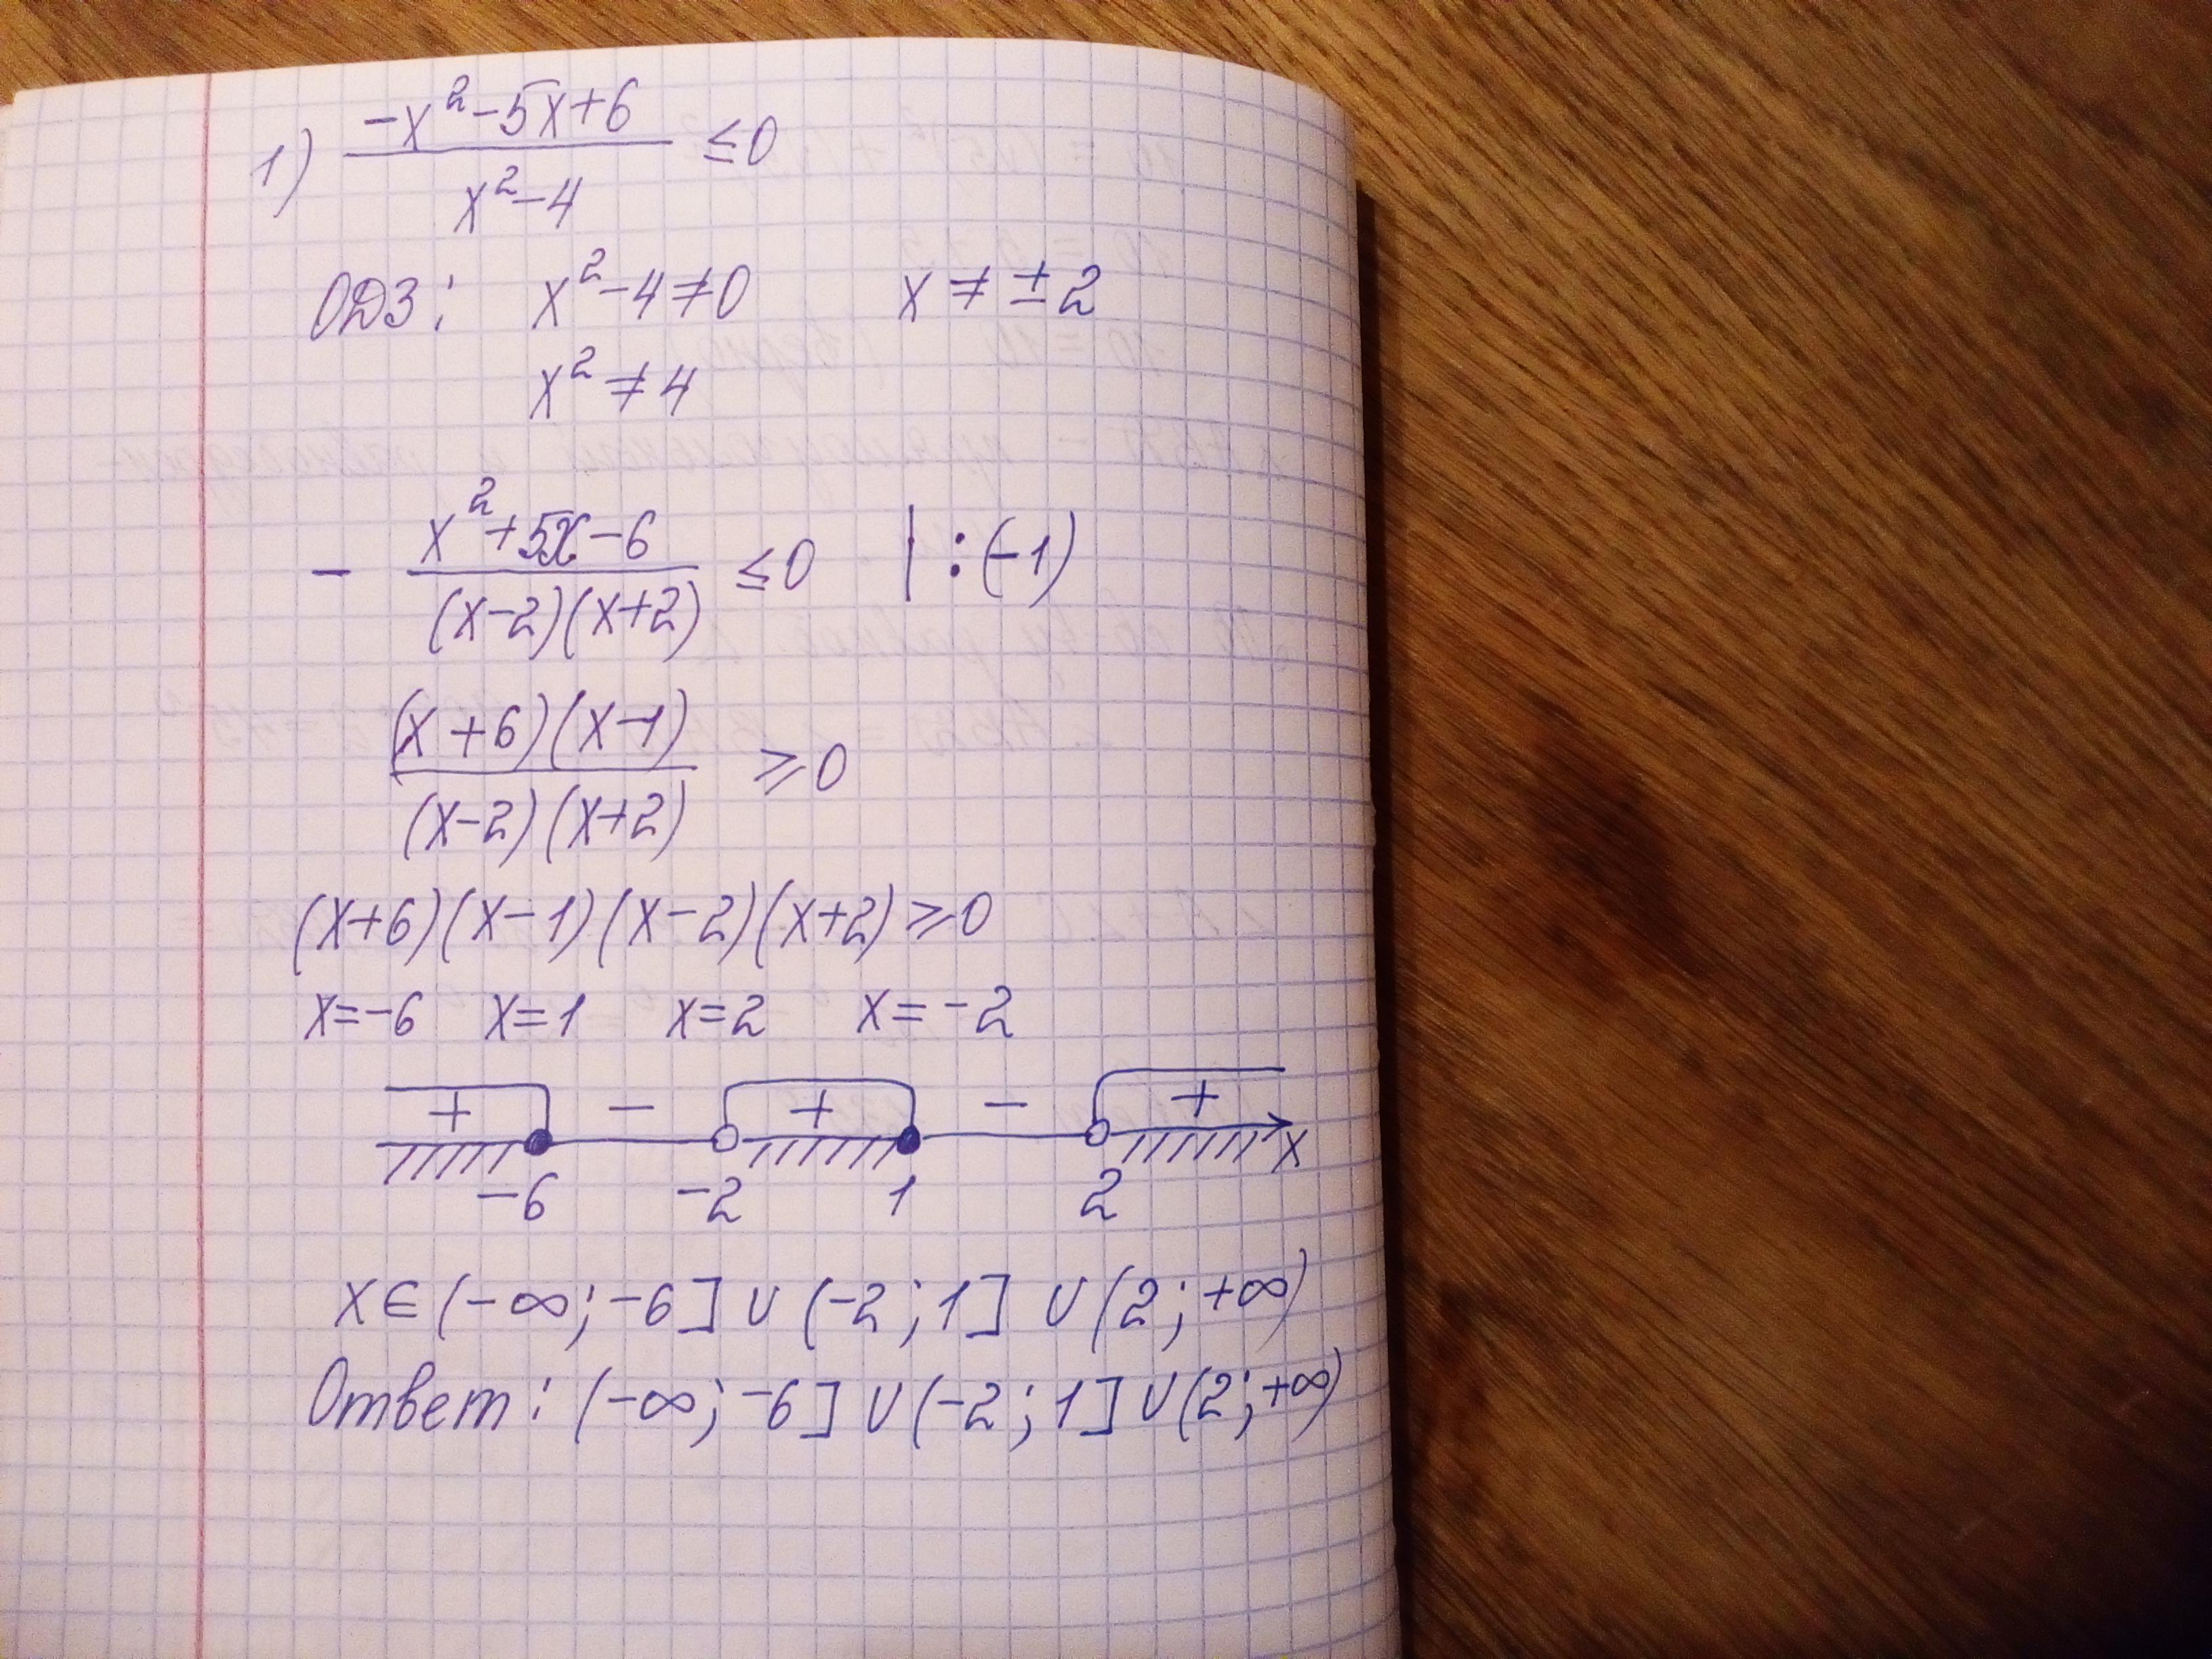 1) (-x²-5x+6)/(x²-4) ≤0
ОДЗ: x²-4≠0 x≠±2
x²≠4
- (x²+5x-6)/((x-2)(x+2)) ≤0 | :(-1)
((x+6)(x-1))/((x-2)(x+2)) ≥0
(x+6)(x-1)(x-2)(x+2)≥0
x=-6 x=1 x=2 x=-2
+ - + - +
-6 -2 1 2 x
x∈(-∞;-6]∪(-2;1]∪(2;+∞)
Ответ: (-∞;-6]∪(-2;1]∪(2;+∞)